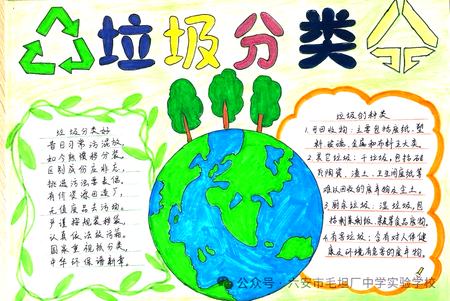 垃圾分类
垃圾分类好
昔日习常污混放,
如今
区别成
挑选污浊要去保,
有价资源回道厂,
无值废品去污物。
严谨按规装桶装,
认真依法放污箱。
国家重视抓分类,
中华环保谱新章。
垃圾的种类
1.可回收物:主要包括废纸、塑
料、玻璃、金属和布料五大类。
2.其它垃圾:干垃圾,包括砖
瓦陶瓷、渣土、卫生间废纸等
难以回收的废弃物及尘土。
3.厨余垃圾:湿垃圾,包
括剩菜剩饭、蔬菜等食品废物。
4.有害垃圾:含有对人体健
康及环境有危害的废弃物。
公众号·六安市毛坦厂中学实验学校